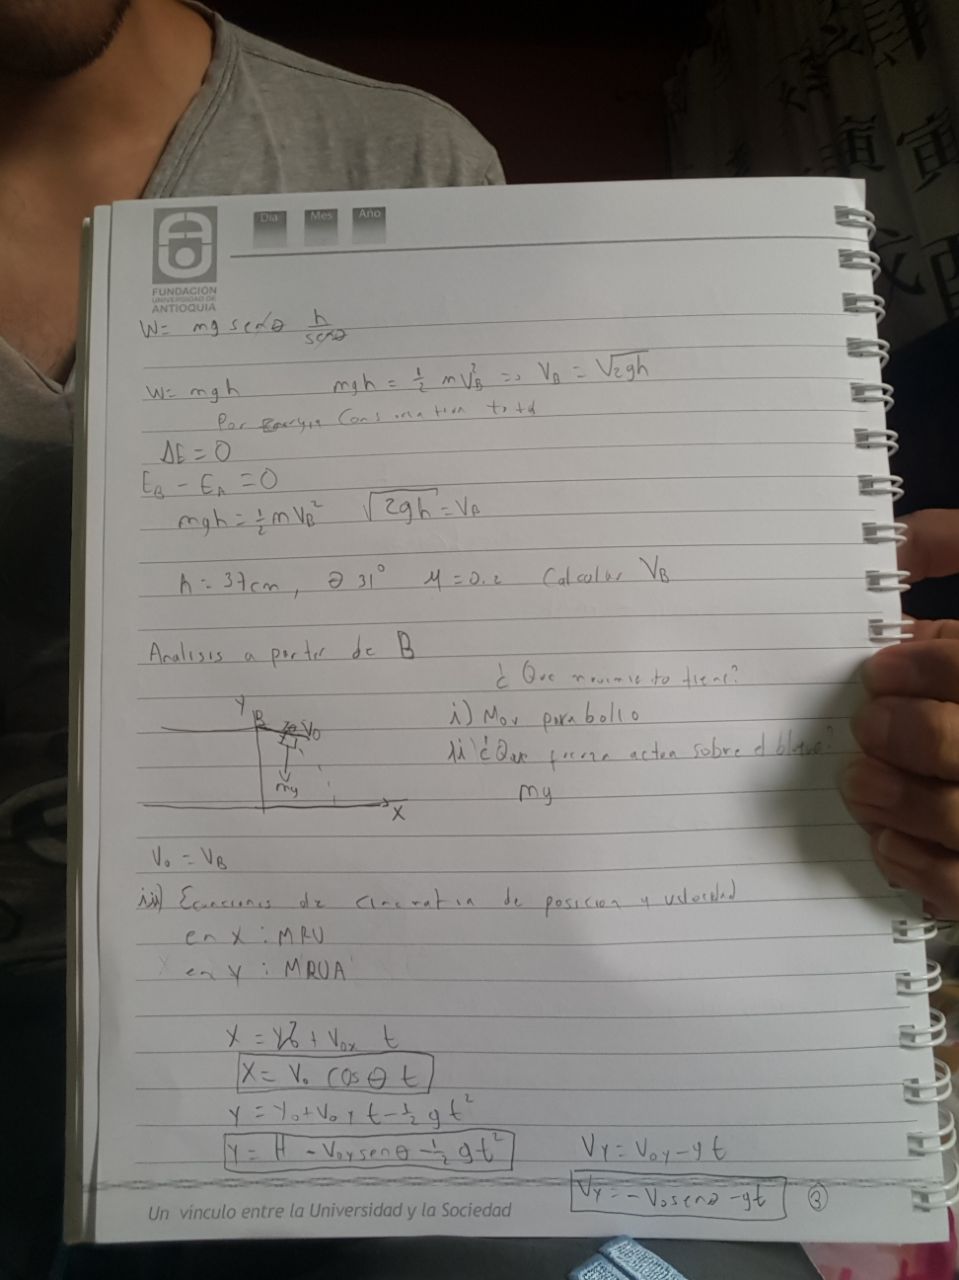 Día Mes Año
FUNDACIÓN
UNIVERSIDAD DE
ANTIOQUIA
W= mg senθ h/senθ
W= mgh mgh = 1/2 mV_B^2 => V_B = √2gh
Por
ΔE = 0
E_B - E_A = 0
mgh = 1/2 mV_B^2 √2gh = V_B
h = 37cm, θ 31° μ=0.2 Calcular V_B
Analisis a partir de B
¿Que movimiento tiene?
i) Mov parabolico
ii) ¿Que fuerza actua sobre el bloque?
mg
Y B V_0
mg
X
V_0 = V_B
iii) Ecuaciones de cinematica de posicion y velocidad
en X : MRU
en Y : MRUA
X = X_0 + V_0x t
X = V_0 cosθ t
Y = Y_0 + V_0y t - 1/2 g t^2
Y = H - V_0y senθ - 1/2 g t^2
V_Y = V_0Y - g t
V_Y = - V_0 senθ - gt ③
Un vínculo entre la Universidad y la Sociedad
寅 寅